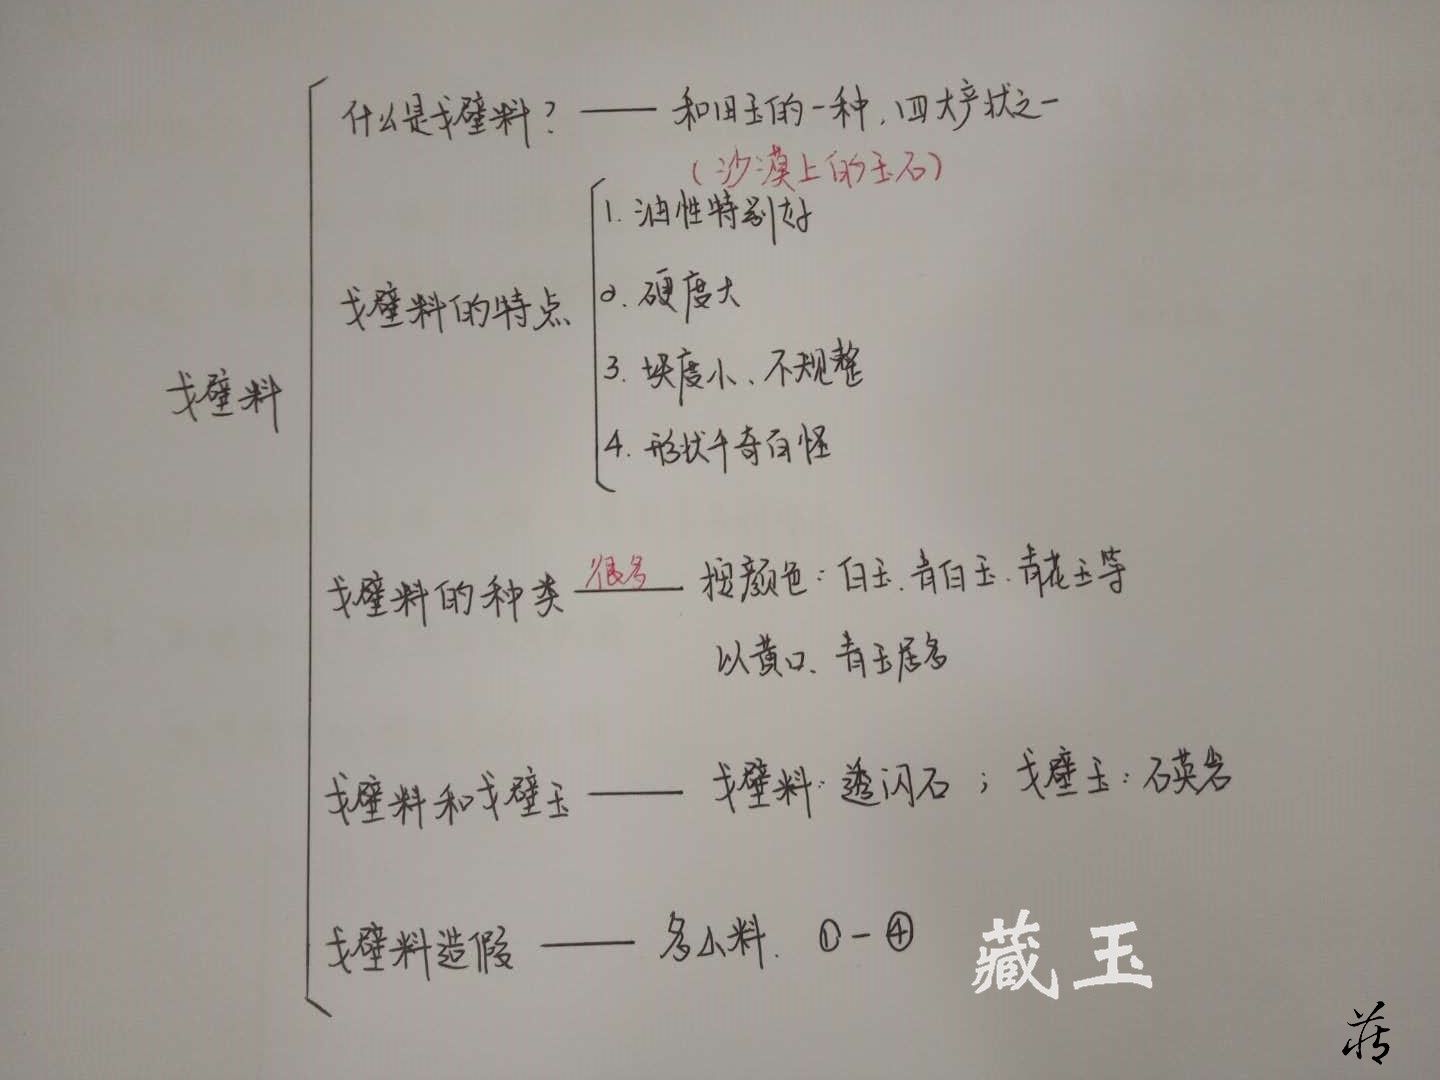 什么是戈壁料? —— 和田玉的一种,四大产状之一
(沙漠上的玉石)
戈壁料的特点
1. 油性特别好
2. 硬度大
3. 块度小、不规整
4. 形状千奇百怪
戈壁料
戈壁料的种类 很多 —— 按颜色:白玉、青白玉、青花玉等
以黄口、青玉居多
戈壁料和戈壁玉 —— 戈壁料:透闪石;戈壁玉:石英岩
戈壁料造假 —— 多山料. ①-④
藏玉